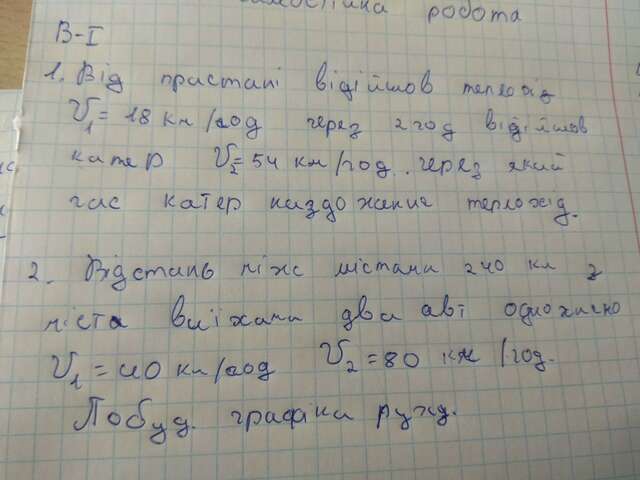 робота
В-I
1. Від пристані відійшов теплохід
V₁ = 18 км/год через 2 год відійшов
катер V₂ = 54 км/год. через який
час катер наздожение теплохід.
2. Відстань між містами 240 км з
міста виїхали два авт одночасно
V₁ = 40 км/год V₂ = 80 км/год.
Побуд. графіки руху.